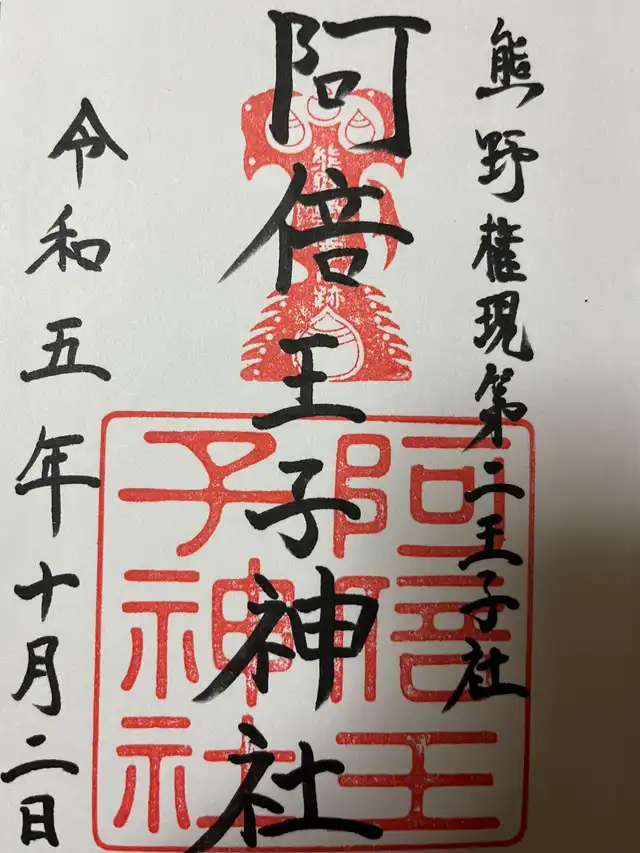 熊野権現第二王子社
阿倍王子神社
令和五年十月二日
阿倍王
子神社